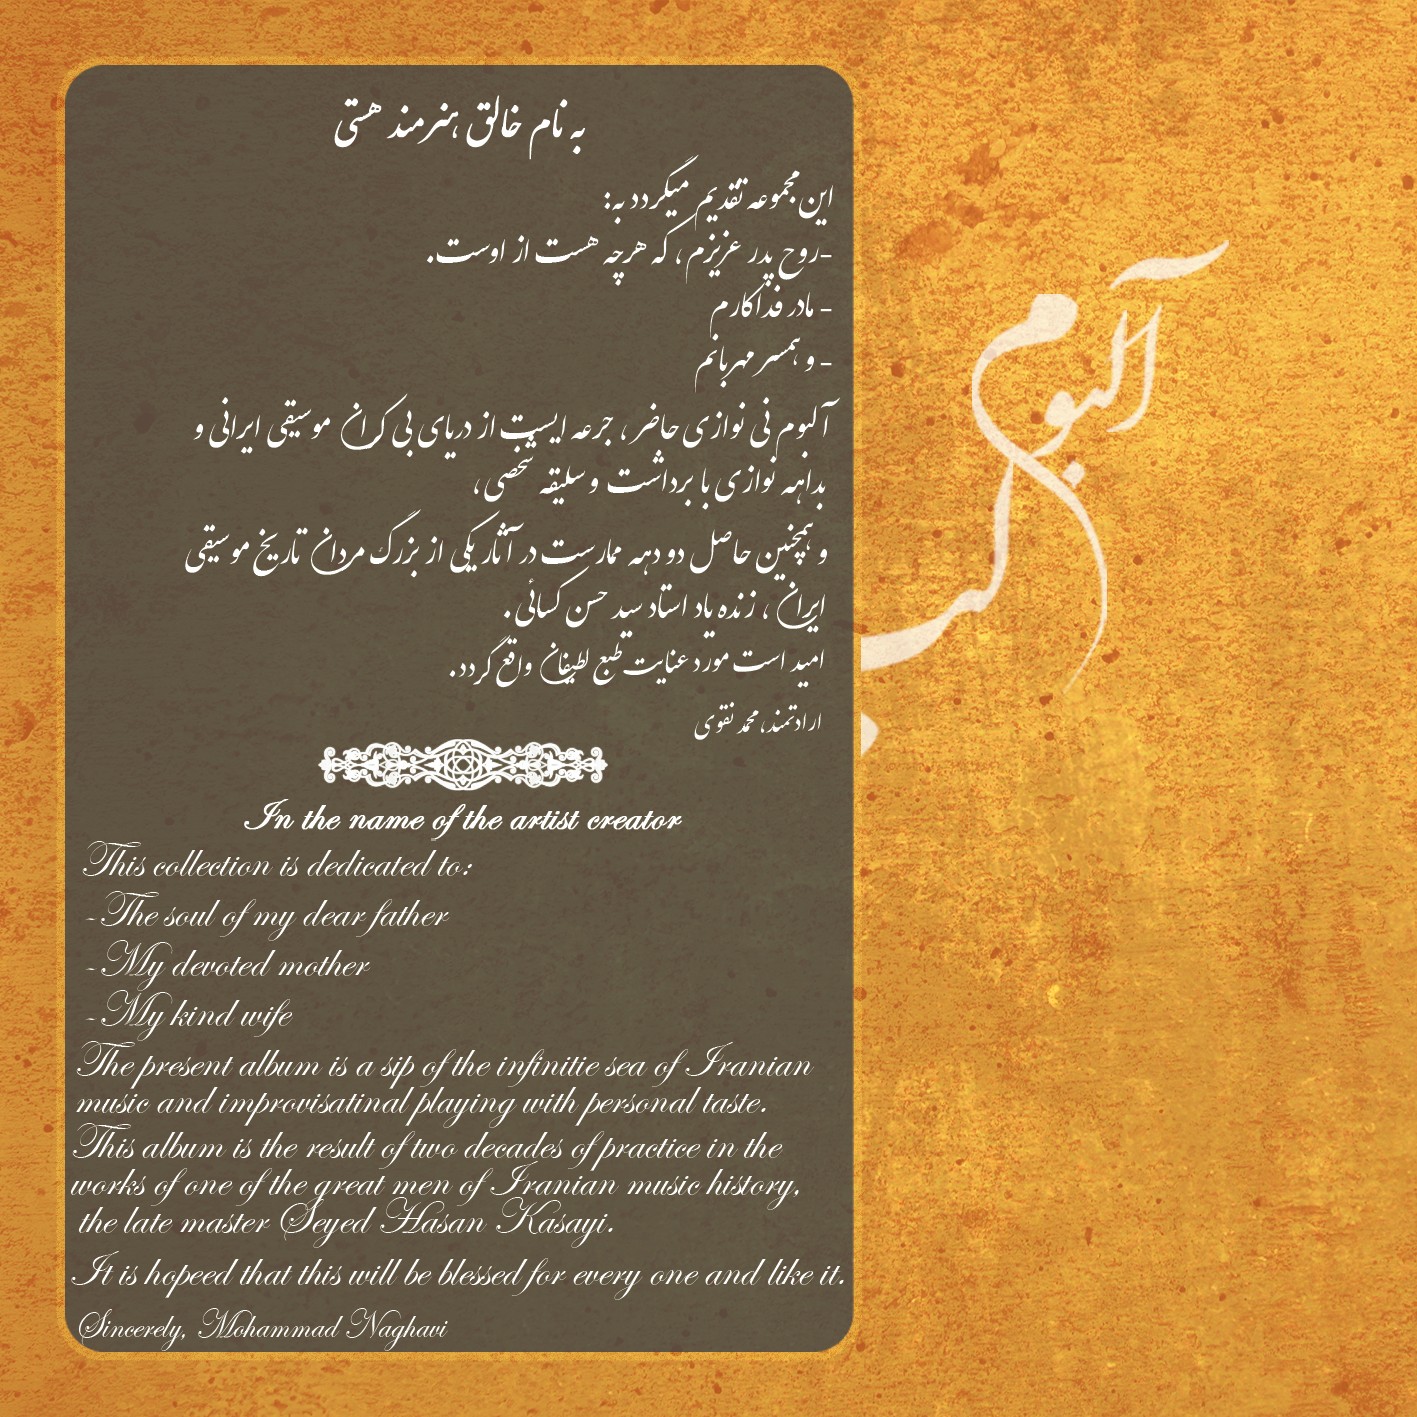 به نام خالق هنرمند هستی
این مجموعه تقدیم میگردد به:
-روح پدر عزیزم، که هرچه هست از اوست.
- مادر فداکارم
- و همسر مهربانم
آلبوم نی نوازی حاضر، جرعه ایست از دریای بی کران موسیقی ایرانی و
بداهه نوازی با برداشت و سلیقه شخصی،
و همچنین حاصل دو دهه ممارست در آثار یکی از بزرگ مردان تاریخ موسیقی
ایران، زنده یاد استاد سید حسن کسائی.
امید است مورد عنایت طبع لطیفان واقع گردد.
ارادتمند، محمد نقوی
In the name of the artist creator
This collection is dedicated to:
-The soul of my dear father
-My devoted mother
-My kind wife
The present album is a sip of the infinitie sea of Iranian
music and improvisatinal playing with personal taste.
This album is the result of two decades of practice in the
works of one of the great men of Iranian music history,
the late master Seyed Hasan Kasayi.
It is hopeed that this will be blessed for every one and like it.
Sincerely, Mohammad Naghavi
آلبوم